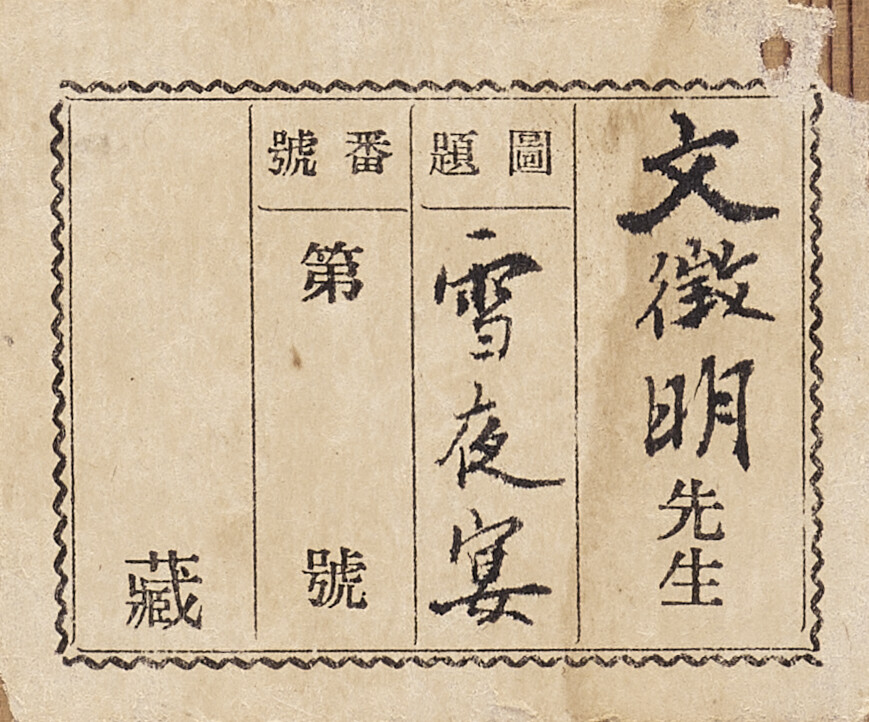 文徵明先生
圖題
雪夜宴
番號
第 號
藏